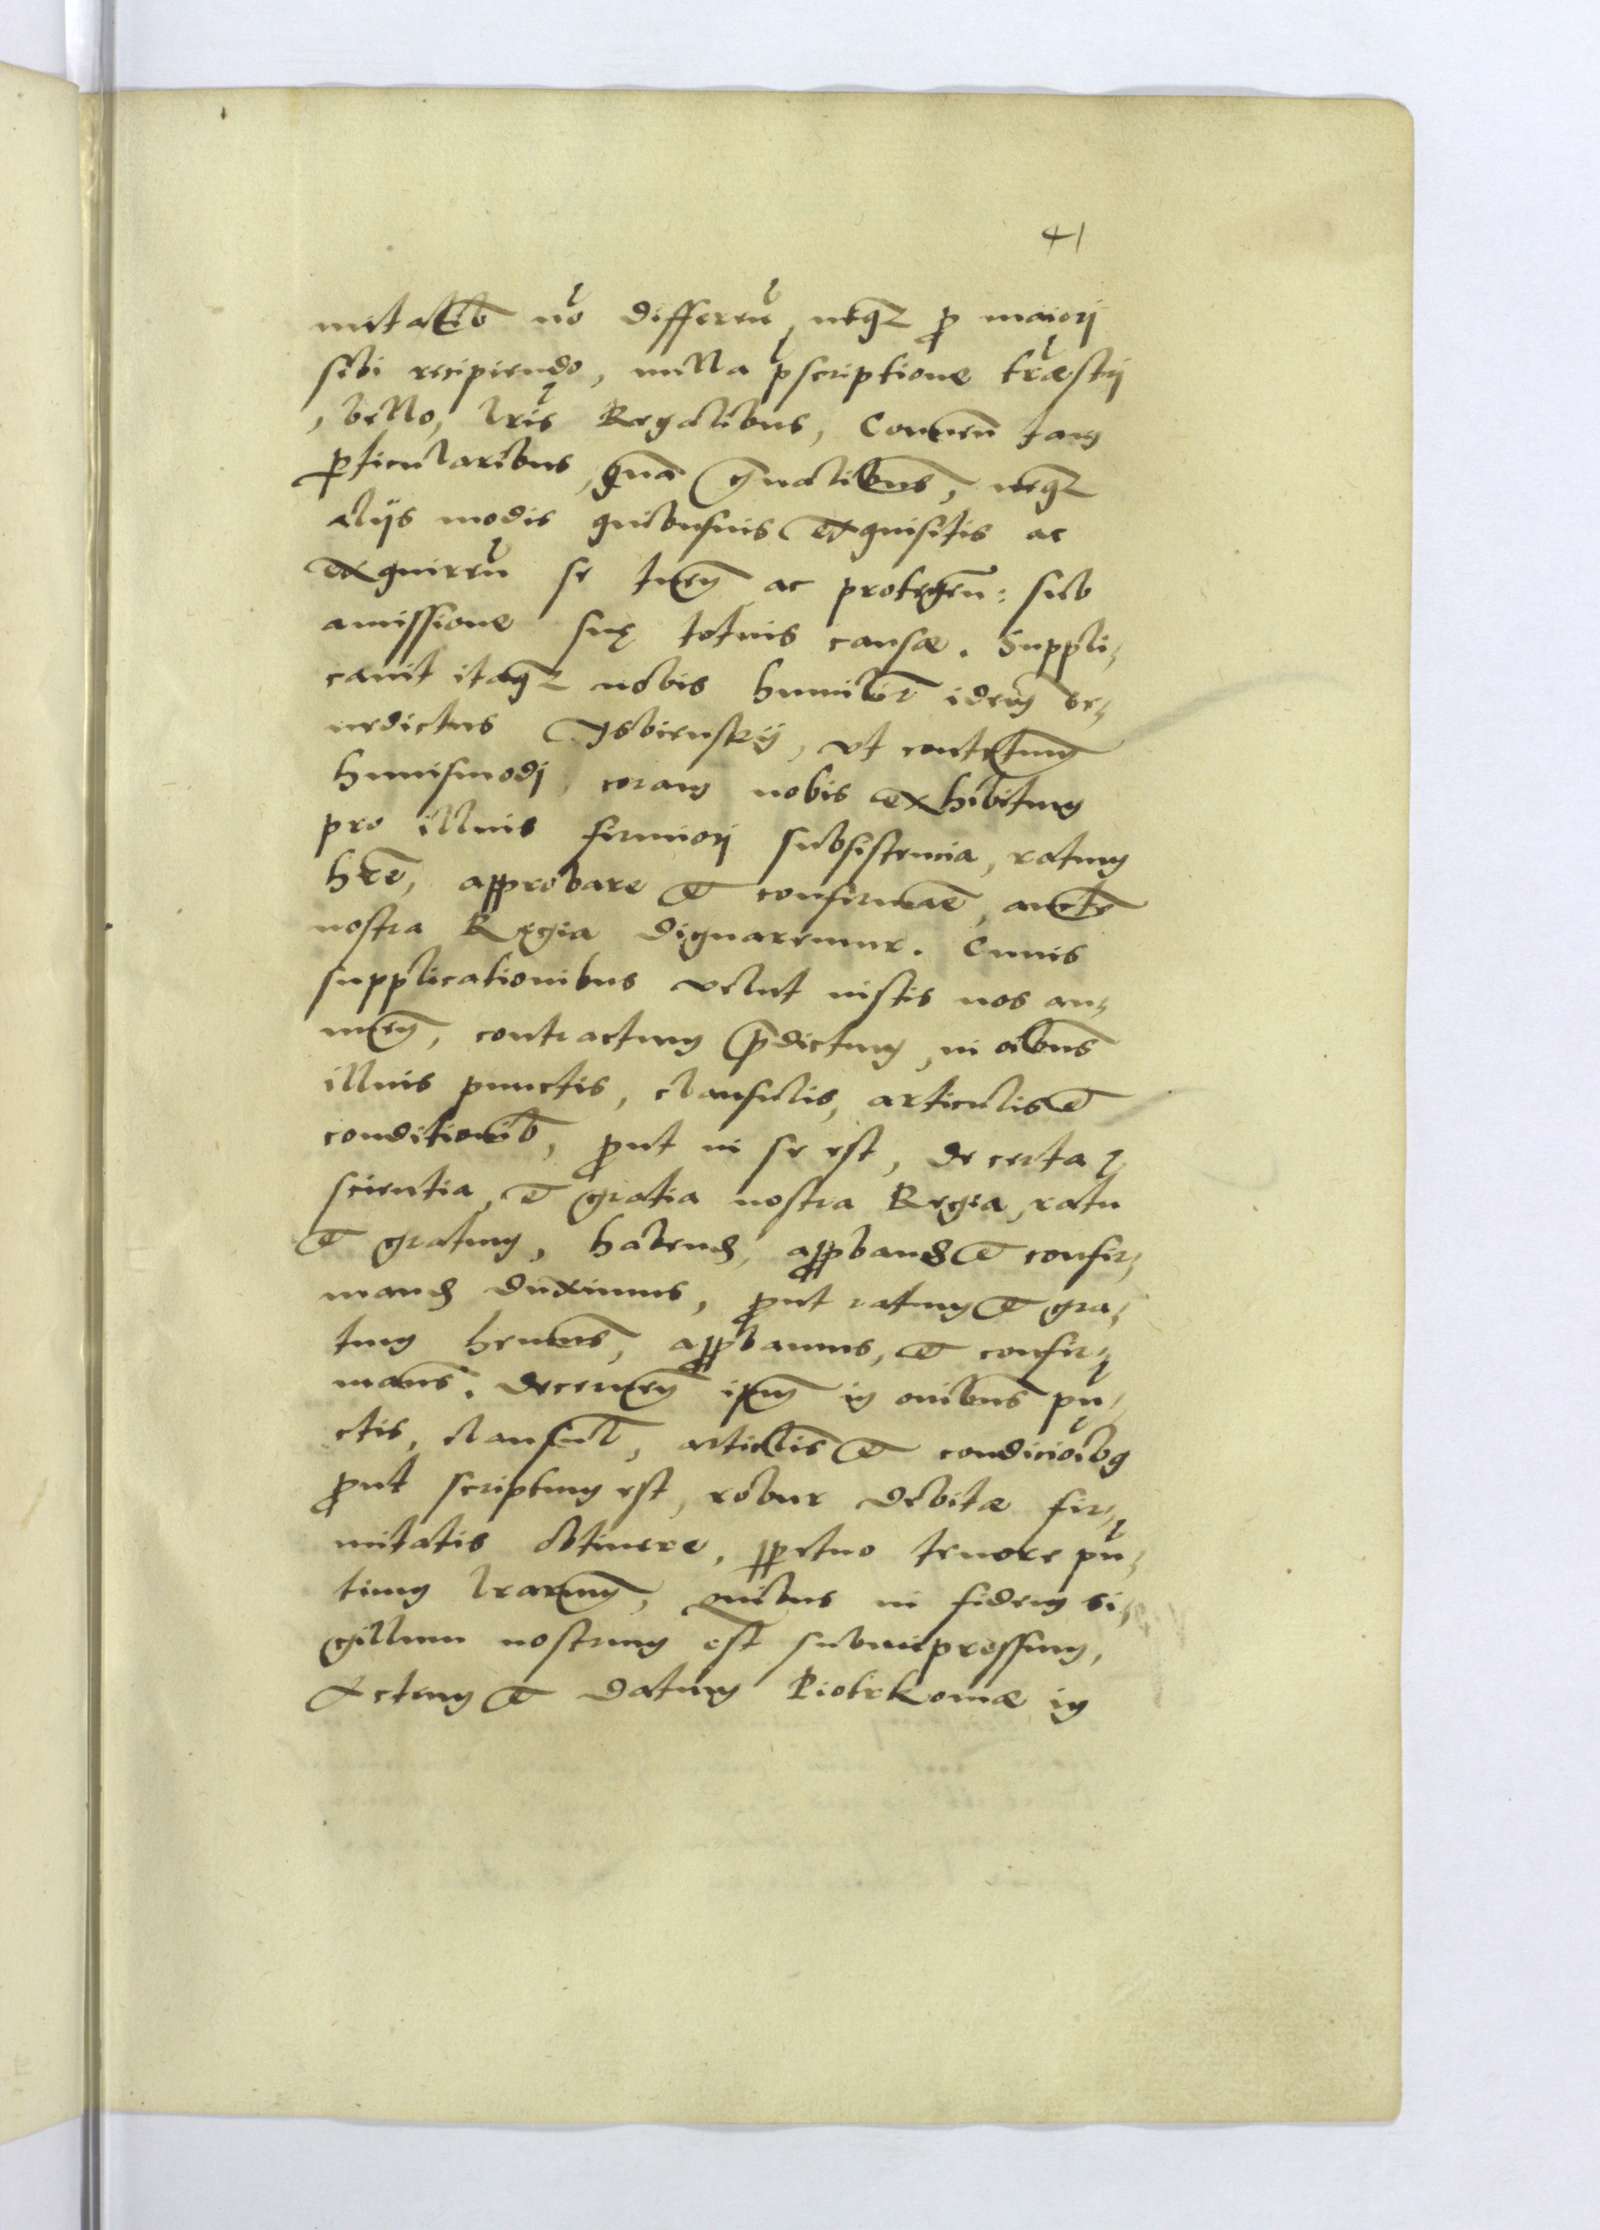 41
mitatib nō differen, neqz p maiorj
sibi recipiendo, nulla pscriptione træstrj
, bello, lris Regalibus, Conuen tam
pticularibus, quā gn̄alibus, neqz
alijs modis quibusuis exquisitis ac
exquirēn se tuen ac protegen: sub
amissione suę totius causæ. Suppli,
cauit itaqz nobis humilit idem be,
nedictus Isbienskij, vt contctum
huiusmodj, coram nobis exhibitum
pro illius firmiorj subsistencia, ratum
hrē, approbare et confirmaē, aucte
nostra Regia dignaremur. Cuius
supplicationibus velut iustis nos an,
nuen, contractum p̄dictum, in oibus
illius punctis, clausulis, articulis et
conditionib, put in se est, de certa
scientia, et gratia nostra Regia, ratū
et gratum, habend, appband et confir,
mand duximus, put ratum et gra,
tum hemus, appbamus, et confir,
mams. Decernen ipm in omibus pū,
ctis, clausul, articlis et condicioibq
put scriptum est, robur debitæ fir,
mitatis obtinere, ppetuo tenore pn,
tium lrarum, quibus in fidem si,
gillum nostrum est subimpressum,
Actum et Datum Piotrkouiæ in